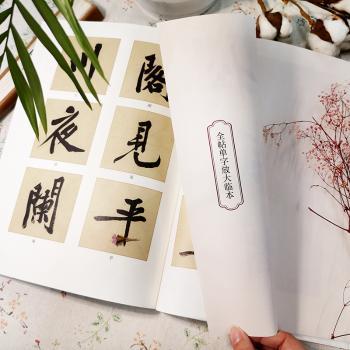 閣
夜 見
闌 平
全帖单字放大临本